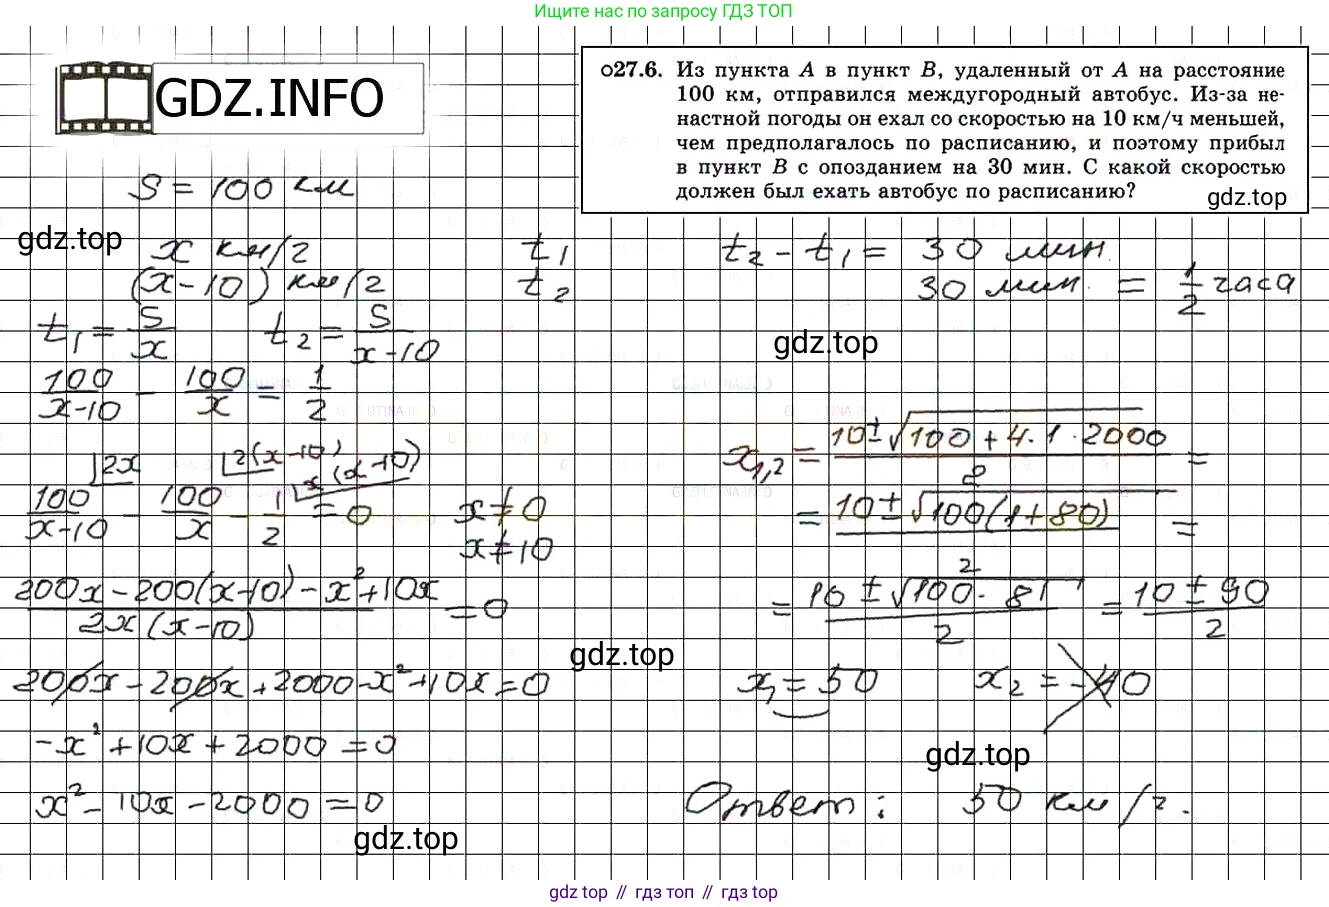 Ищите нас по запросу ГДЗ ТОП
GDZ.INFO
27.6. Из пункта A в пункт B, удаленный от A на расстояние
100 км, отправился междугородный автобус. Из-за не-
настной погоды он ехал со скоростью на 10 км/ч меньшей,
чем предполагалось по расписанию, и поэтому прибыл
в пункт B с опозданием на 30 мин. С какой скоростью
должен был ехать автобус по расписанию?
gdz.top
S = 100 км
gdz.top
x км/ч t₁ t₂ - t₁ = 30 мин.
(x-10) км/ч t₂ 30 мин. = 1/2 часа
t₁ = S/x t₂ = S/(x-10)
gdz.top
100/(x-10) - 100/x = 1/2
2x 2(x-10) x(x-10)
100/(x-10) - 100/x - 1/2 = 0 x≠0
x≠10
(200x-200(x-10)-x²+10x)/(2x(x-10)) = 0
200x-200x+2000-x²+10x=0
-x²+10x+2000=0
x²-10x-2000=0
gdz.top
x₁,₂ = (10±√(100+4·1·2000))/2 =
= (10±√(100(1+80)))/2 =
= (10±√(100·81))/2 = (10±90)/2
gdz.top
x₁=50 x₂=-40
gdz.top
Ответ: 50 км/ч.
gdz top // гдз топ // гдз top